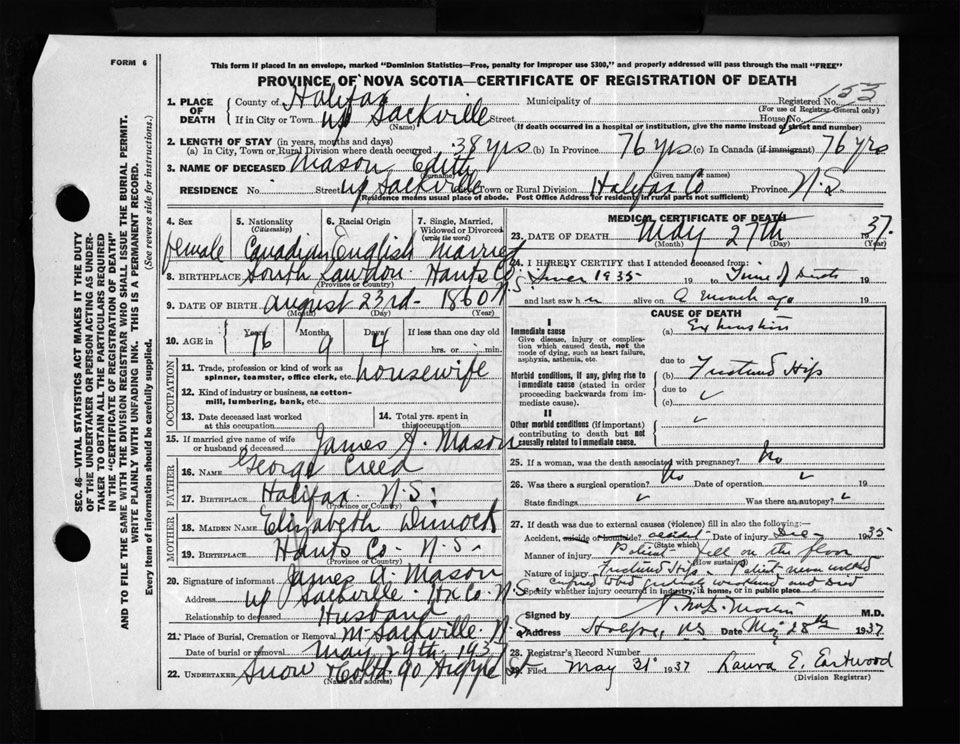 FORM 6
This form if placed in an envelope, marked "Dominion Statistics—Free, penalty for improper use $300," and properly addressed will pass through the mail "FREE"
PROVINCE OF NOVA SCOTIA—CERTIFICATE OF REGISTRATION OF DEATH
SEC. 46—VITAL STATISTICS ACT MAKES IT THE DUTY
OF THE UNDERTAKER OR PERSON ACTING AS UNDER-
TAKER TO OBTAIN ALL THE PARTICULARS REQUIRED
IN THE "CERTIFICATE OF REGISTRATION OF DEATH"
AND TO FILE THE SAME WITH THE DIVISION REGISTRAR WHO SHALL ISSUE THE BURIAL PERMIT.
WRITE PLAINLY WITH UNFADING INK. THIS IS A PERMANENT RECORD.
Every item of information should be carefully supplied. (See reverse side for instructions.)
1. PLACE OF DEATH County of Halifax Municipality of Registered No. 153
(For use of Registrar General only)
If in City or Town Up Sackville Street House No.
(Name) (If death occurred in a hospital or institution, give the name instead of street and number)
2. LENGTH OF STAY (in years, months and days)
(a) In City, Town or Rural Division where death occurred 38 yrs (b) In Province 76 yrs (c) In Canada (if immigrant) 76 yrs
3. NAME OF DECEASED Mason Edith
(Surname) (Given name or names)
RESIDENCE No. Street Up Sackville Town or Rural Division Halifax Co Province N.S.
(Residence means usual place of abode. Post Office Address for residents in rural parts not sufficient)
4. Sex 5. Nationality (Citizenship) 6. Racial Origin 7. Single, Married, Widowed or Divorced (write the word)
female Canadian English Married
8. BIRTHPLACE South Hants Co. N.S
(Province or Country)
9. DATE OF BIRTH August 23rd 1860
(Month) (Day) (Year)
10. AGE in Years Months Days If less than one day old
76 9 4 hrs. or min.
OCCUPATION
11. Trade, profession or kind of work as spinner, teamster, office clerk, etc. housewife
12. Kind of industry or business, as cotton-mill, lumbering, bank, etc.
13. Date deceased last worked at this occupation 14. Total yrs. spent in this occupation
15. If married give name of wife or husband of deceased James A. Mason
FATHER
16. NAME George Creed
17. BIRTHPLACE Halifax N.S.
(Province or Country)
MOTHER
18. MAIDEN NAME Elizabeth Dimock
19. BIRTHPLACE Hants Co. N.S.
(Province or Country)
20. Signature of informant James A. Mason
Address Up Sackville Hx Co. N.S
Relationship to deceased Husband
21. Place of Burial, Cremation or Removal M. Sackville N.S
Date of burial or removal May 29th 1937
22. UNDERTAKER Snow & Co Ltd 90 Argyle St
(Name and address)
MEDICAL CERTIFICATE OF DEATH
23. DATE OF DEATH May 27th 1937.
(Month) (Day) (Year)
24. I HEREBY CERTIFY that I attended deceased from:
1935 19 to Time of Death 19
and last saw her alive on A month ago 19
CAUSE OF DEATH
I
Immediate cause (a) Exhaustion
Give disease, injury or complication which caused death, not the mode of dying, such as heart failure, asphyxia, asthenia, etc.
due to
Morbid conditions, if any, giving rise to immediate cause (stated in order proceeding backwards from immediate cause). (b) Fractured Hip
due to
(c)
II
Other morbid conditions (if important) contributing to death but not causally related to immediate cause.
25. If a woman, was the death associated with pregnancy? No
26. Was there a surgical operation? No Date of operation 19
State findings Was there an autopsy?
27. If death was due to external causes (violence) fill in also the following:—
Accident, suicide or homicide? accident Date of injury Dec 1935
(State which)
Manner of injury Patient fell on the floor
(How sustained)
Nature of injury Fractured Hip. Patient never walked
Specify whether injury occurred in industry, in home, or in public place
Signed by M.D.
Address Halifax, NS Date May 28th 1937
28. Registrar's Record Number
29. Filed May 31 1937 Laura E. Eastwood
(Division Registrar)